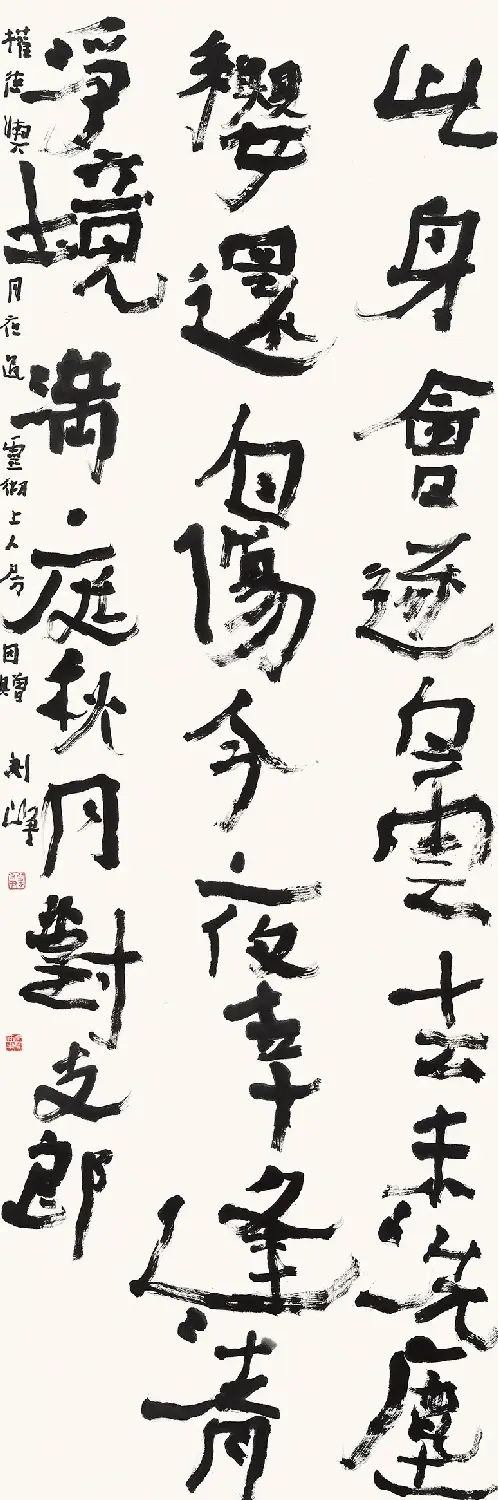 此身會逐白雲去未洗塵
纓還自傷今夜幸逢清
淨境滿庭秋月對支郎
權德輿月夜過靈徹上人房因贈 劉崢